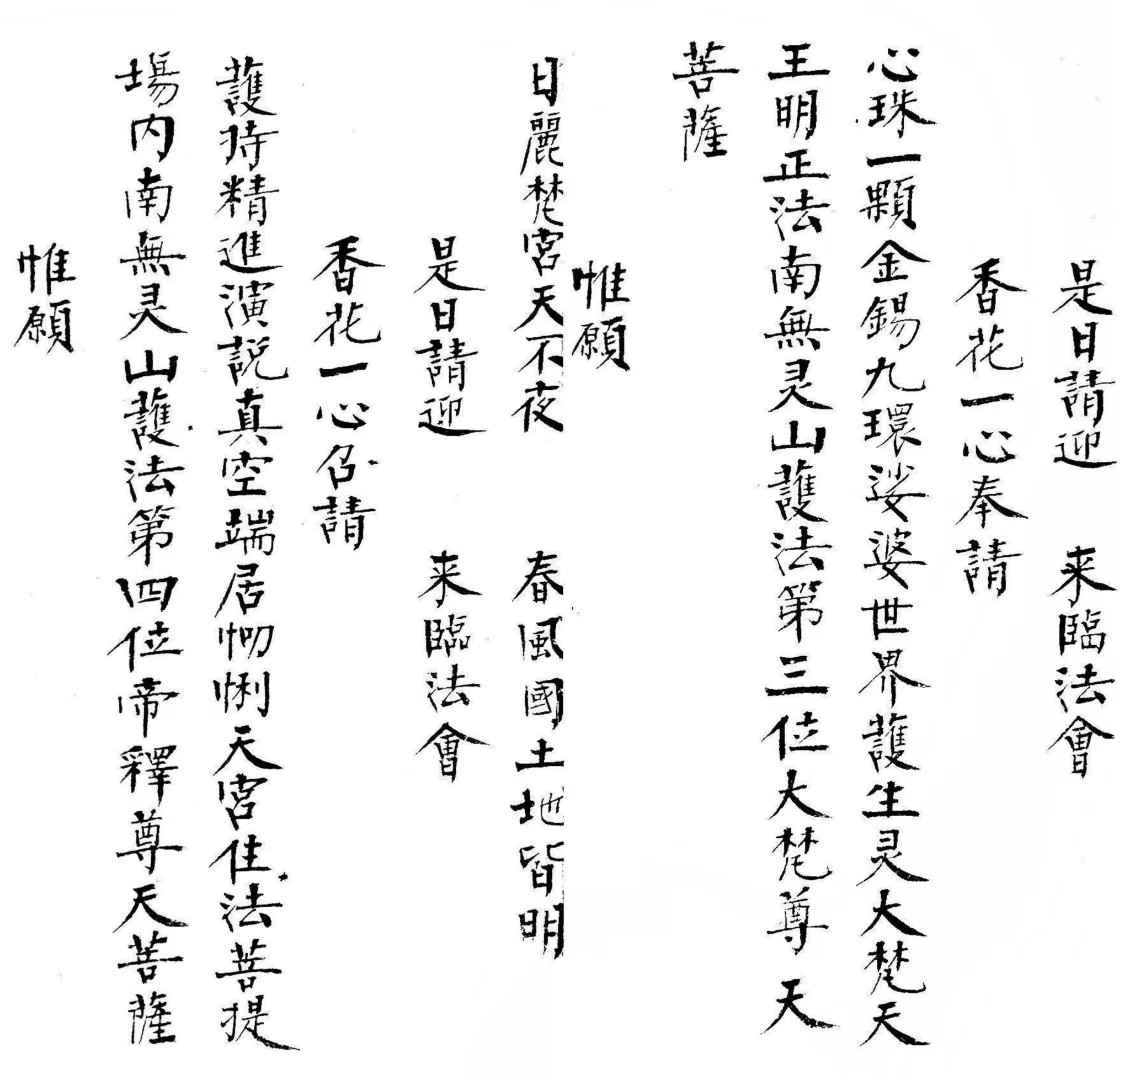 是日請迎　来臨法會
香花一心奉請
心珠一顆金錫九環娑婆世界護生灵大梵天
王明正法南無灵山護法第三位大梵尊天
菩薩
惟願
日麗梵宮天不夜　春風國土地皆明
是日請迎　来臨法會
香花一心召請
護持精進演説真空端居忉悧天宮住法菩提
場内南無灵山護法第四位帝釋尊天菩薩
惟願